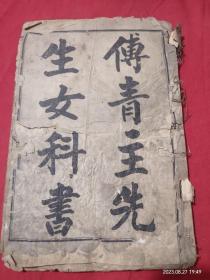 傅青主先
生女科書
2023.08.27 19:49